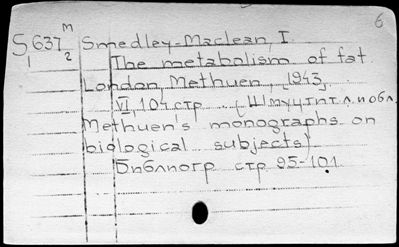 6
S637 M
1 2
Smedley-Maclean, I
The metabolism of fat.
London, Methuen, 1943,
VI, 104 стр. (Шмуцтит. л. и обл.
Methuen's monographs on
biological subjects)
Библиогр стр 95-101.